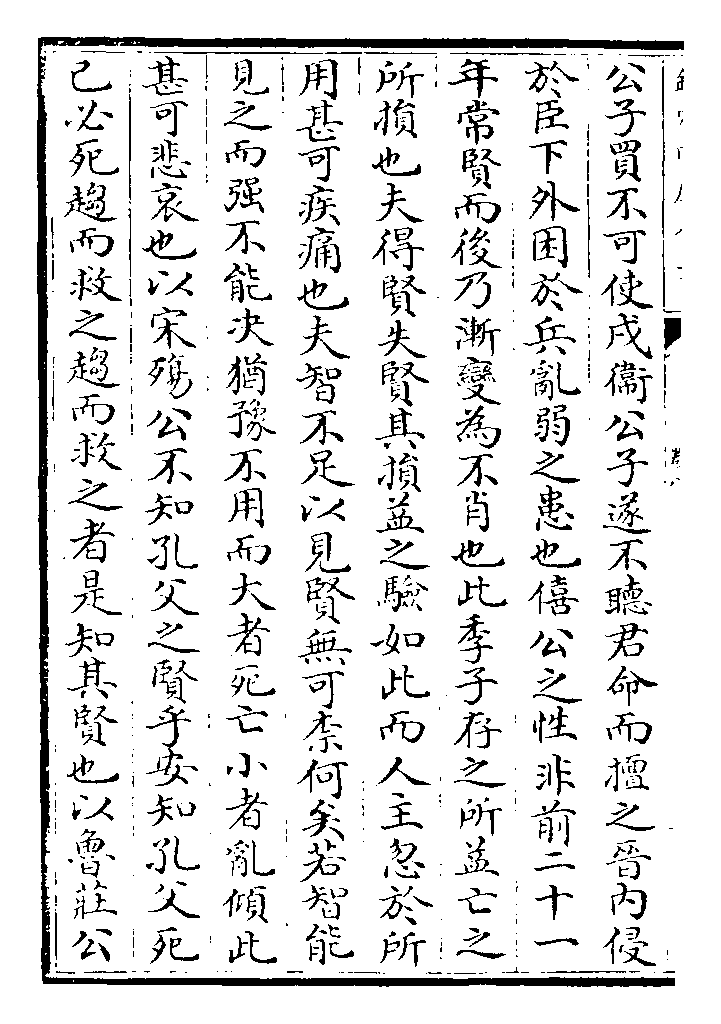 公子買不可使戍衛公子遂不聽君命而擅之晉內侵
於臣下外困於兵亂弱之患也僖公之性非前二十一
年常賢而後乃漸變為不肖也此季子存之所益亡之
所損也夫得賢失賢其損益之驗如此而人主忽於所
用甚可疾痛也夫智不足以見賢無可柰何矣若智能
見之而强不能决猶豫不用而大者死亡小者亂傾此
甚可悲哀也以宋殤公不知孔父之賢乎安知孔父死
己必死趨而救之趨而救之者是知其賢也以魯莊公